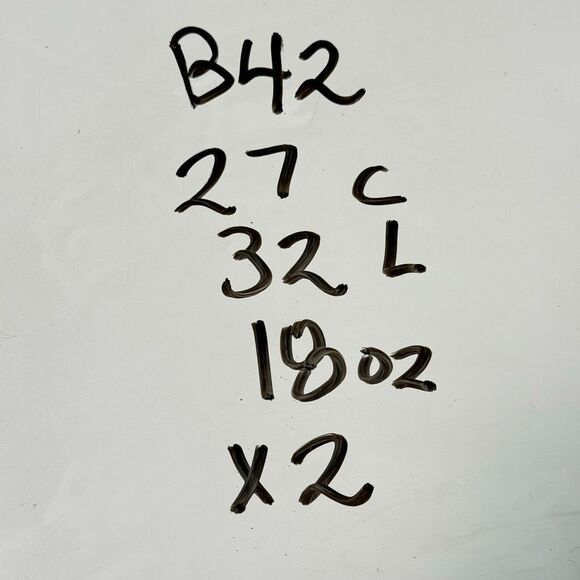 B42
27 c
32 L
18 oz
x2